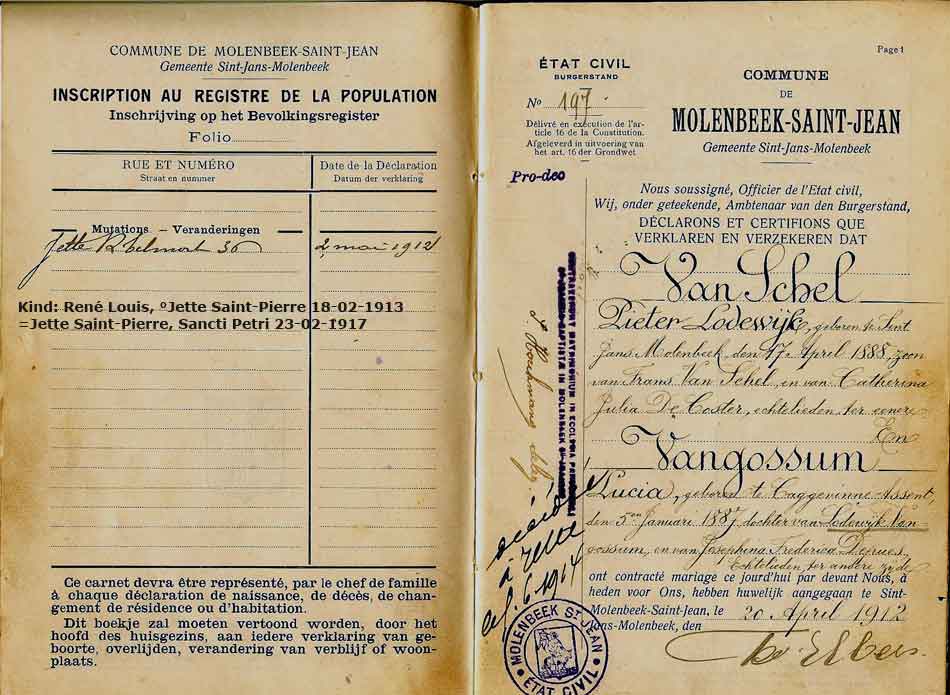 COMMUNE DE MOLENBEEK-SAINT-JEAN
Gemeente Sint-Jans-Molenbeek
INSCRIPTION AU REGISTRE DE LA POPULATION
Inschrijving op het Bevolkingsregister
Folio
RUE ET NUMÉRO
Straat en nummer
Date de la Déclaration
Datum der verklaring
Mutations. – Veranderingen
Jette R 36
2 mai 1912
Kind: René Louis, ºJette Saint-Pierre 18-02-1913
=Jette Saint-Pierre, Sancti Petri 23-02-1917
Ce carnet devra être représenté, par le chef de famille
à chaque déclaration de naissance, de décès, de chan-
gement de résidence ou d'habitation.
Dit boekje zal moeten vertoond worden, door het
hoofd des huisgezins, aan iedere verklaring van ge-
boorte, overlijden, verandering van verblijf of woon-
plaats.
Page 1
ÉTAT CIVIL
BURGERSTAND
No 197
Délivré en exécution de l'ar-
ticle 16 de la Constitution.
Afgeleverd in uitvoering van
het art. 16 der Grondwet
Pro-deo
COMMUNE
DE
MOLENBEEK-SAINT-JEAN
Gemeente Sint-Jans-Molenbeek
Nous soussigné, Officier de l'Etat civil,
Wij, onder geteekende, Ambtenaar van den Burgerstand,
DÉCLARONS ET CERTIFIONS QUE
VERKLAREN EN VERZEKEREN DAT
Van Schel
Pieter Lodewijk, geboren te Sint
Jans Molenbeek den 17 April 1888, zoon
van Frans Van Schel, en van Catherina
Julia De Coster, echtelieden ter eenere
En
Vangossum
Lucia, geboren te Caggevinne-Assent,
den 5en Januari 1887, dochter van Lodewijk Van-
gossum, en van Josephina Frederica
Echtelieden ter andere zijde
ont contracté mariage ce jourd'hui par devant Nous, à
heden voor Ons, hebben huwelijk aangegaan te Sint-
Molenbeek-Saint-Jean, le
Jans-Molenbeek, den
20 April 1912
IN ECCLESIA
BAPTISTÆ IN MOLENBEEK
à Jette
6-1914
MOLENBEEK ST JEAN
ÉTAT CIVIL